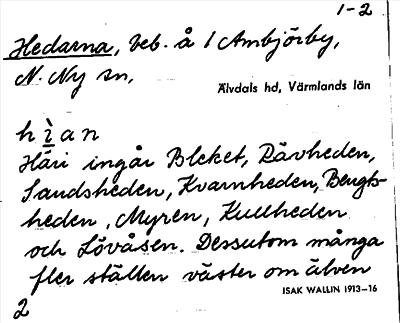 1-2
Hedarna, beb. å 1 Ambjörby,
N. Ny sn,
Älvdals hd, Värmlands län
hìan
Häri ingår Bleket, Rävheden,
Sandsheden, Kvarnheden, Bengts-
heden, Myren, Kullheden
och Lövåsen. Dessutom många
fler ställen väster om älven
ISAK WALLIN 1913-16
2